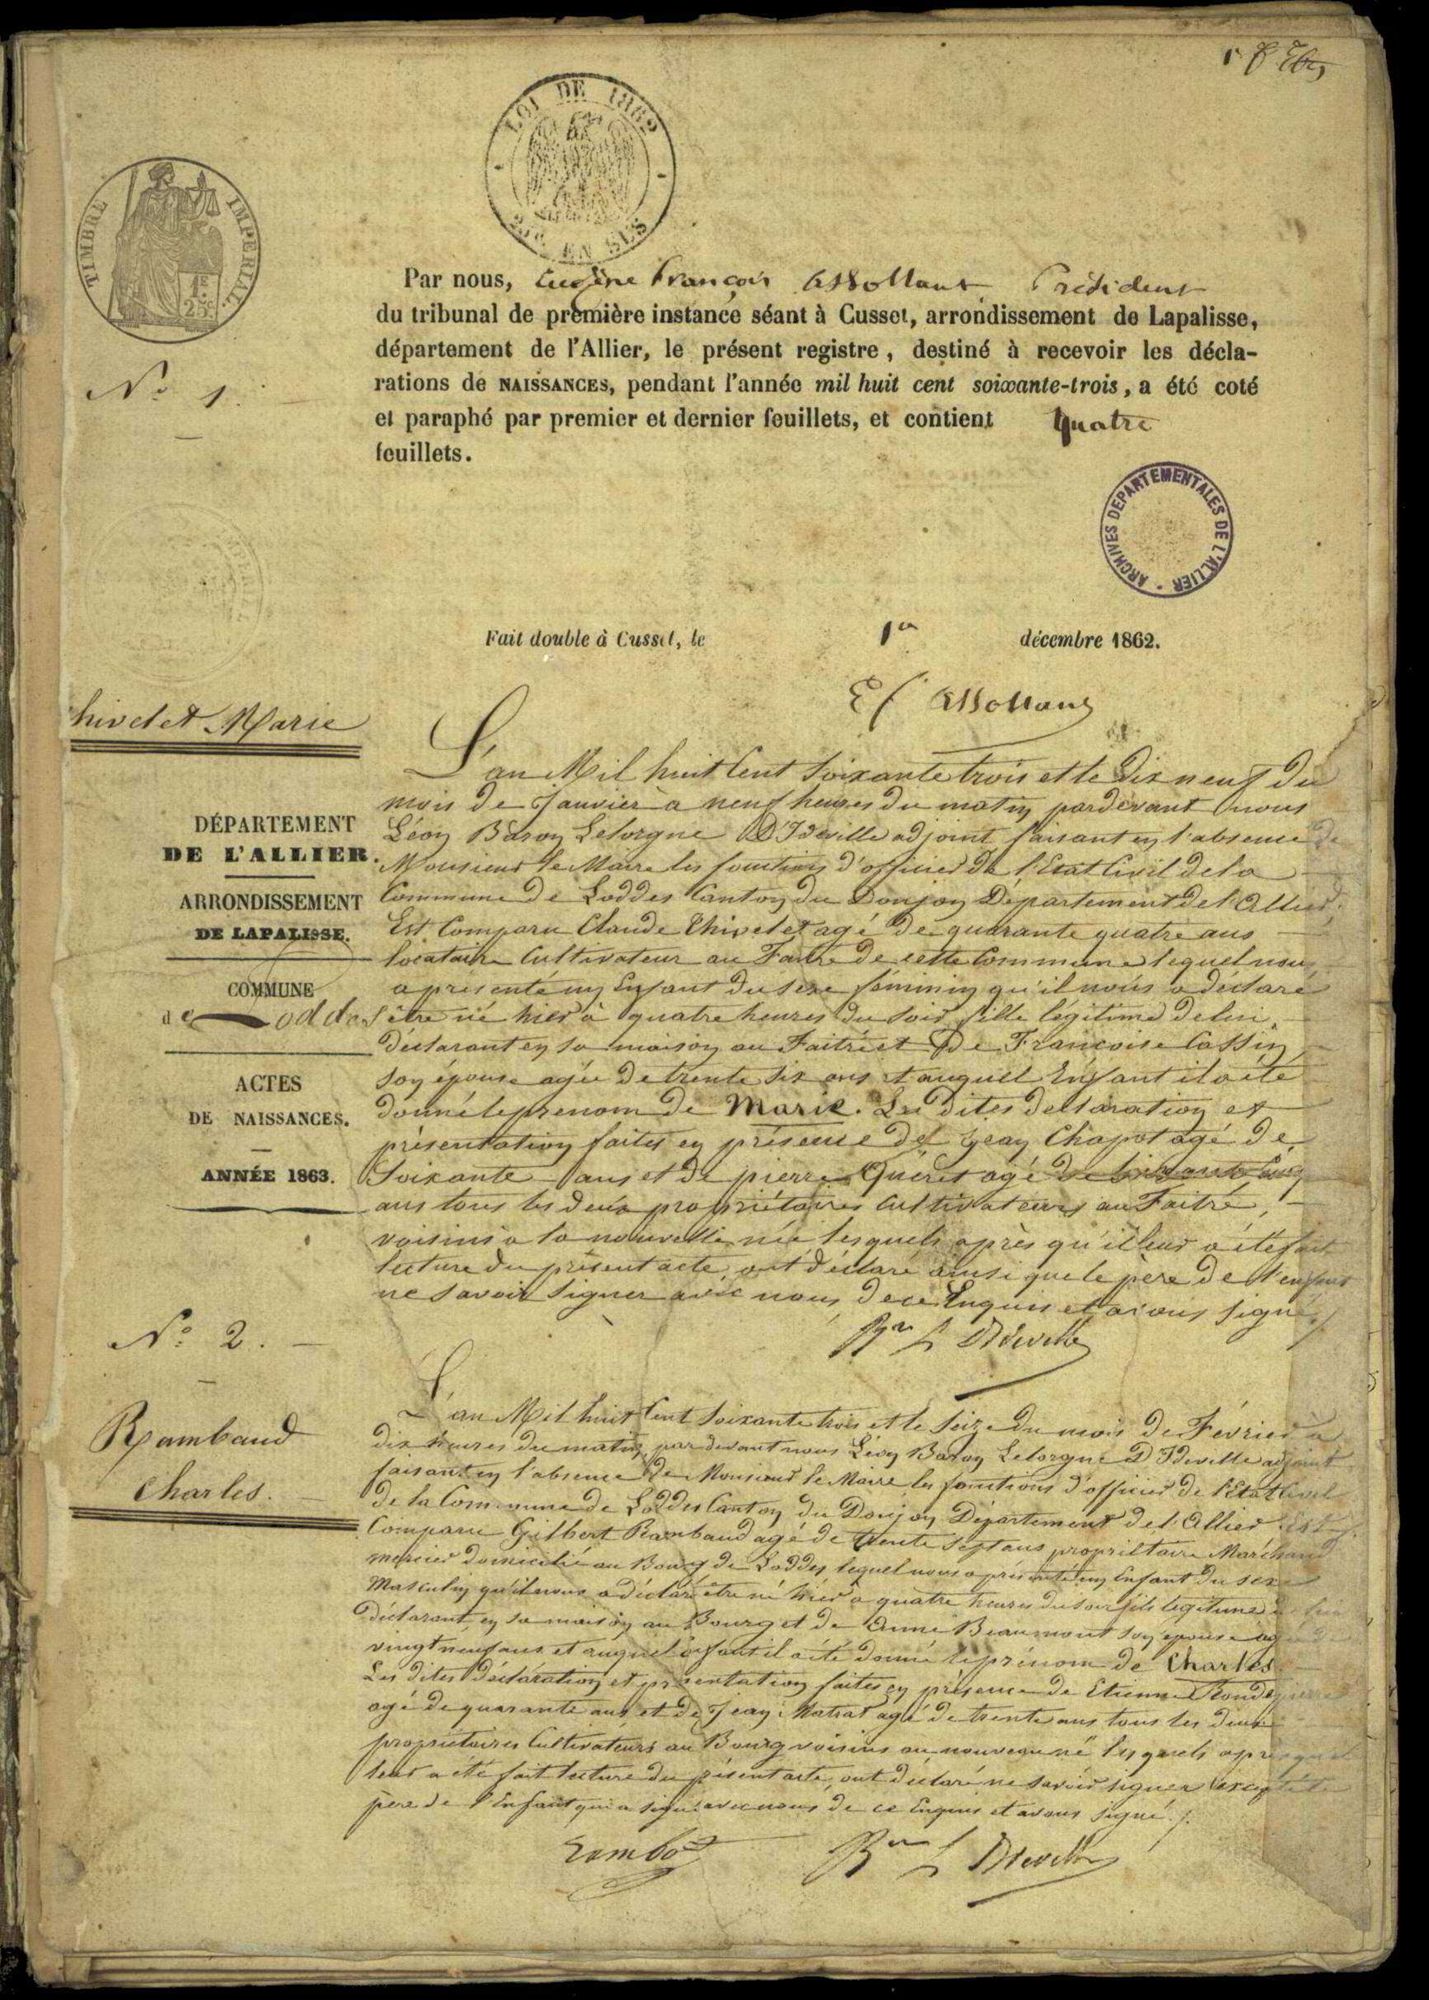 LOI DE 1862
EN SUS
TIMBRE IMPÉRIAL.
1F.
25C.
Par nous, Eugène François Assollant Président
du tribunal de première instance séant à Cusset, arrondissement de Lapalisse,
département de l'Allier, le présent registre, destiné à recevoir les décla-
rations de NAISSANCES, pendant l'année mil huit cent soixante-trois, a été coté
et paraphé par premier et dernier feuillets, et contient quatre
feuillets.
ARCHIVES DEPARTEMENTALES DE L'ALLIER
Fait double à Cusset, le 1er décembre 1862.
E f Assollant
No 1.
hivelet Marie
DÉPARTEMENT
DE L'ALLIER.
ARRONDISSEMENT
DE LAPALISSE.
COMMUNE
de Loddes
ACTES
DE NAISSANCES.
ANNÉE 1863.
L'an Mil huit Cent Soixante trois et le Dix neuf du
mois de Janvier à neuf heures du matin pardevant nous
Léon Baron Lelorgne D'Ideville adjoint faisant en l'absence de
Monsieur le Maire les fonctions d'officier de l'Etat Civil de la
Commune de Loddes Canton du Donjon Département de l'Allier,
Est Comparu Claude Chivelet agé de quarante quatre ans
locataire Cultivateur au Faitré de cette Commune lequel nous
a présenté un Enfant du sexe féminin qu'il nous a déclaré
être né hier à quatre heures du soir fille légitime de lui
déclarant en sa maison au Faitré et De Francoise Cassin
son épouse agée de trente six ans et auquel Enfant il a été
donné le prenom de Marie. Les dites declaration et
présentation faites en présence de Jean Chapot agé de
Soixante ans et de pierre Quéret agé de Soixante Cinq
ans tous les deux propriétaires Cultivateurs au Faitré,
voisins à la nouvelle née lesquels après qu'il leur a été fait
lecture du présent acte, ont déclaré ainsi que le père de l'enfant
ne savoir signer avec nous de ce Enquis et avons signé./.
Bon L D'Ideville
No 2.
Rambaud
Charles.
L'an Mil huit Cent Soixante trois et le Seize du mois de Février à
dix heures du matin par devant nous Léon Baron Lelorgne D'Ideville adjoint
faisant en l'absence de Monsieur le Maire les fonctions d'officier de l'Etat Civil
de la Commune de Loddes Canton du Donjon Département de l'Allier Est
Comparu Gilbert Rambaud agé de trente sept ans propriétaire Marchand
mercier domicilié au Bourg de Loddes lequel nous a présenté un Enfant du sexe
Masculin qu'il nous a déclaré être né hier à quatre heures du soir fils légitime de lui
déclarant en sa maison au Bourg et de Anne Beaumont son épouse agée de
vingt neuf ans et auquel Enfant il a été donné le prénom de Charles
Les dites déclaration et présentation faites en présence de Etienne Rondepierre
agé de quarante ans et de Jean Matrat agé de trente ans tous les deux
propriétaires Cultivateurs au Bourg voisins au nouveau né lesquels après qu'il
leur a été fait lecture du présent acte, ont déclaré ne savoir signer excepté le
père de l'Enfant qui a signé avec nous de ce Enquis et avons signé./.
Rambo
Bon L D'Ideville